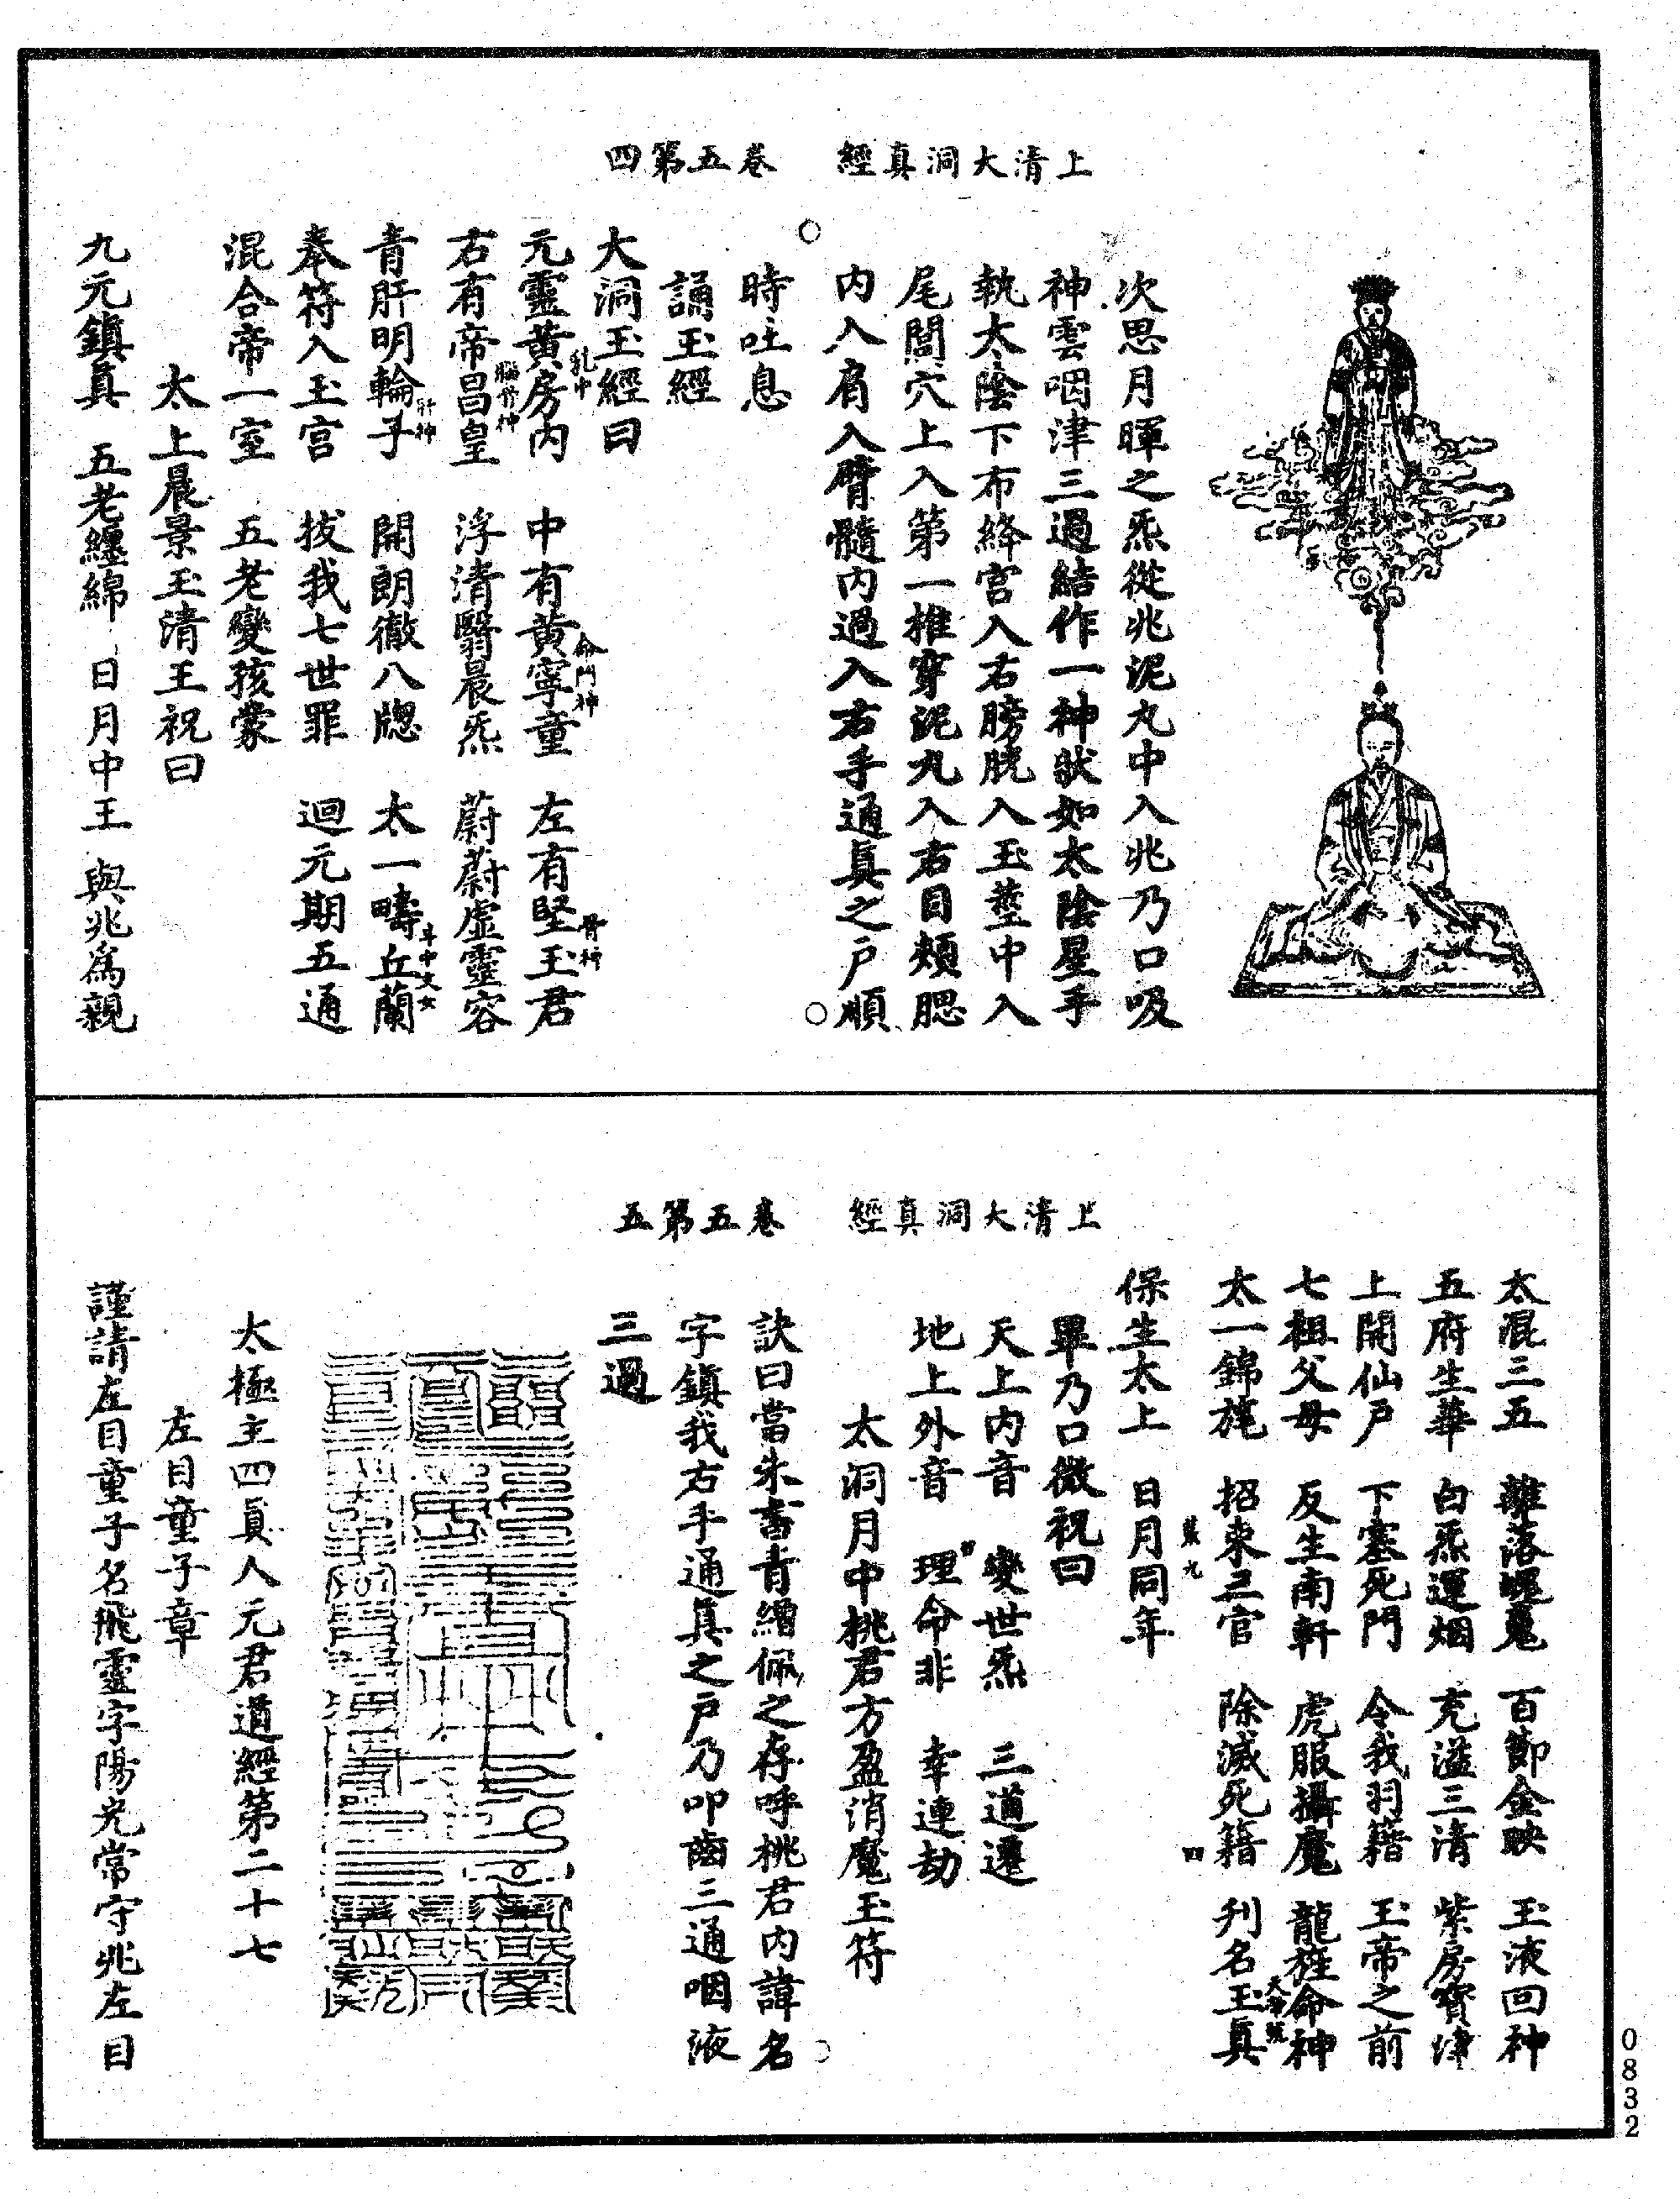 上清大洞真經　卷五第四
次思月暉之炁從兆泥丸中入兆乃口吸
神雲咽津三過結作一神狀如太陰星手
執太陰下布絳宮入右膀胱入玉莖中入
尾閭穴上入第一椎穿泥丸入右目頰腮
內入肩入臂髓內過入右手通真之戶順
時吐息
誦玉經
大洞玉經曰
元靈黃房內乳中　中有黃寧童命門神　左有堅玉君骨神
右有帝昌皇腦骨神　浮清翳晨炁　蔚蔚虛靈容
青肝明輪子肝神　開朗徹八牕　太一疇丘蘭斗中文女
奉符入玉宮　拔我七世罪　迴元期五通
混合帝一室　五老變孩蒙
太上晨景玉清王祝曰
九元鎮真　五老纏綿　日月中王　與兆爲親
上清大洞真經　卷五第五
太混三五　離落魍魎　百節金映　玉液回神
五府生華　白炁運烟　充溢三清　紫房寶津
上開仙戶　下塞死門　令我羽籍　玉帝之前
七祖父母　反生南軒　虎服攝魔　龍旌命神
太一錦旄　招束三官　除滅死籍　刊名玉真
保生太上　日月同年
畢乃口微祝曰
天上內音　變世炁　三道遷
地上外音　理命非　幸連劫
太洞月中桃君方盈消魔玉符
訣曰當朱書青繒佩之存呼桃君內諱名
字鎮我右手通真之戶乃叩齒三通咽液
三過
太極主四真人元君道經第二十七
左目童子章
謹請左目童子名飛靈字陽光常守兆左目
0832